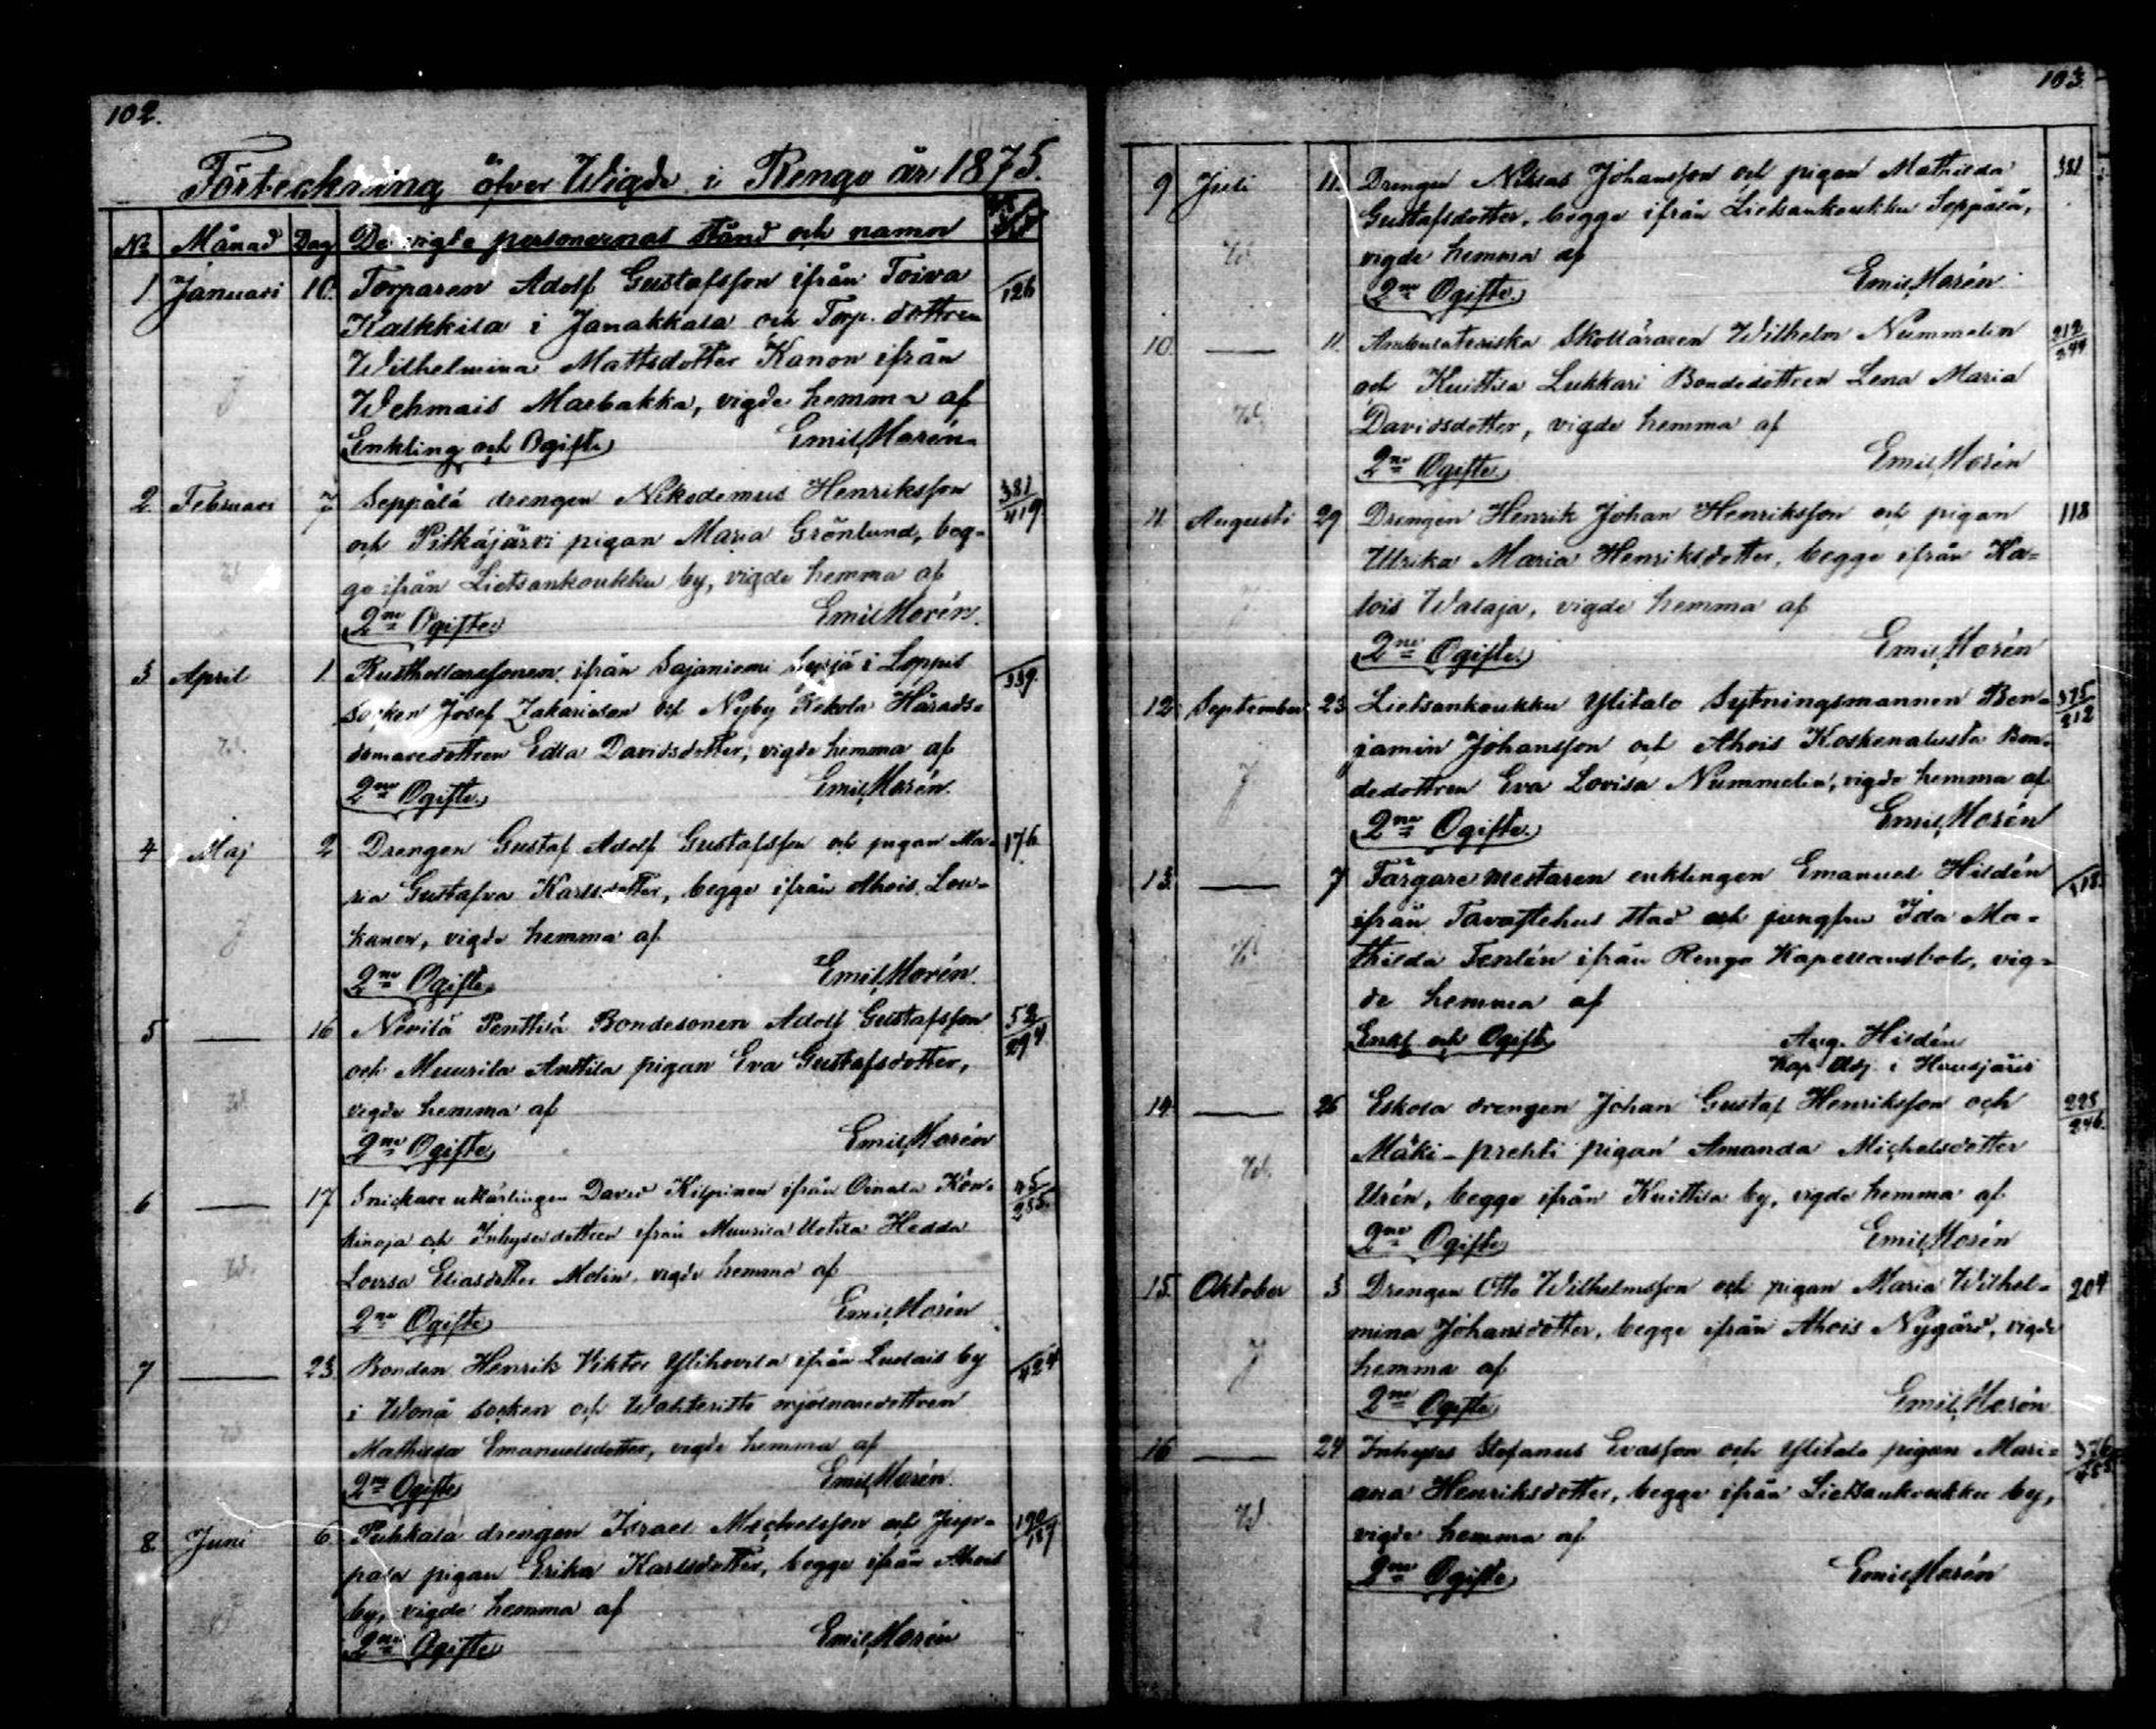 102.
Förteckning öfver Wigde i Rengo år 1875.
No Månad Dag De vigde personernas stånd och namn
1 Januari 10. Torparen Adolf Gustafsson ifrån Toiva 126
Kalkkila i Janakkala och Torp. dottren
Wilhelmina Mattsdotter Kanon ifrån
Wehmais Maebakka, vigde hemma af
Enkling och Ogift Emil Morén
2 Februari 7 Seppälä drengen Nikodemus Henriksson 381/419
och Pitkäjärvi pigan Maria Grönlund, beg-
ge ifrån Lietsankoukku by, vigde hemma af
2ne Ogifte Emil Morén.
3 April 1 Rusthollaresonen ifrån Sajaniemi i Loppis 339.
Socken Josef Zakariasson och Nyby Kekola Härads-
domaredottren Edla Davidsdotter, vigde hemma af
2ne Ogifte. Emil Morén.
4 Maj 2 Drengen Gustaf Adolf Gustafsson och pigan Ma- 176
ria Gustafva Karlsdotter, begge ifrån Ahois Lou-
kanen, vigde hemma af
2ne Ogifte. Emil Morén.
5 — 16 Nevilä Penttilä Bondesonen Adolf Gustafsson 52/294
och Muurila Anttila pigan Eva Gustafsdotter,
vigde hemma af
2ne Ogifte Emil Morén
6 — 17 Snickare utlärlingen David Kilpinen ifrån Oinala Kön- 45/285.
kinoja och Inhysesdottren ifrån Muurila Uotila Hedda
Lovisa Eliasdotter Molin, vigde hemma af
2ne Ogifte Emil Morén
7 — 23. Bonden Henrik Viktor Ylihovila ifrån Ludais by 424
i Wånå socken och Wahteristo mjölnaredottren
Mathilda Emanuelsdotter, vigde hemma af
2ne Ogifte Emil Morén.
8. Juni 6 Peuhkala drengen Israel Michelsson och Jup- 190/187
pala pigan Erika Karlsdotter, begge ifrån Ahois
by, vigde hemma af
2ne Ogifte Emil Morén
103.
9 Juli 11. Drengen Niklas Johansson och pigan Mathilda 381
Gustafsdotter, begge ifrån Lietsankoukku Seppälä,
vigde hemma af
2ne Ogifte. Emil Morén.
10. — 11. Ambulatoriska Skolläraren Wilhelm Nummelin 212/244
och Kuittila Lukkari Bondedottren Lena Maria
Davidsdotter, vigde hemma af
2ne Ogifte. Emil Morén
11. Augusti 29 Drengen Henrik Johan Henriksson och pigan 118
Ulrika Maria Henriksdotter, begge ifrån Ka-
lois Walaja, vigde hemma af
2ne Ogifte. Emil Morén
12. September 23 Lietsankoukku Ylitalo Sytningsmannen Ben- 375/212
jamin Johansson och Ahois Koskenalusta Bon-
dedottren Eva Lovisa Nummelin, vigde hemma af
2ne Ogifte. Emil Morén
13. — 7 Färgaremestaren enklingen Emanuel Hildén 118.
ifrån Tavastehus stad och jungfru Ida Ma-
thilda Tenlén ifrån Rengo Kapellansbol, vig-
de hemma af
Enkl och Ogift Aug. Hildén
Kap Adj. i Hausjärvi
14. — 26 Eskola drengen Johan Gustaf Henriksson och 228/246.
Mäki-prehti pigan Amanda Michelsdotter
Urén, begge ifrån Kuittila by, vigde hemma af
2ne Ogifte Emil Morén
15. Oktober 3 Drengen Otto Wilhelmsson och pigan Maria Wilhel- 204
mina Johansdotter, begge ifrån Ahois Nygård, vigde
hemma af
2ne Ogifte Emil Morén
16 — 24 Inhyses Stefanus Evasson och Ylitalo pigan Mari- 376
ana Henriksdotter, begge ifrån Lietsankoukku by,
vigde hemma af
2ne Ogifte Emil Morén